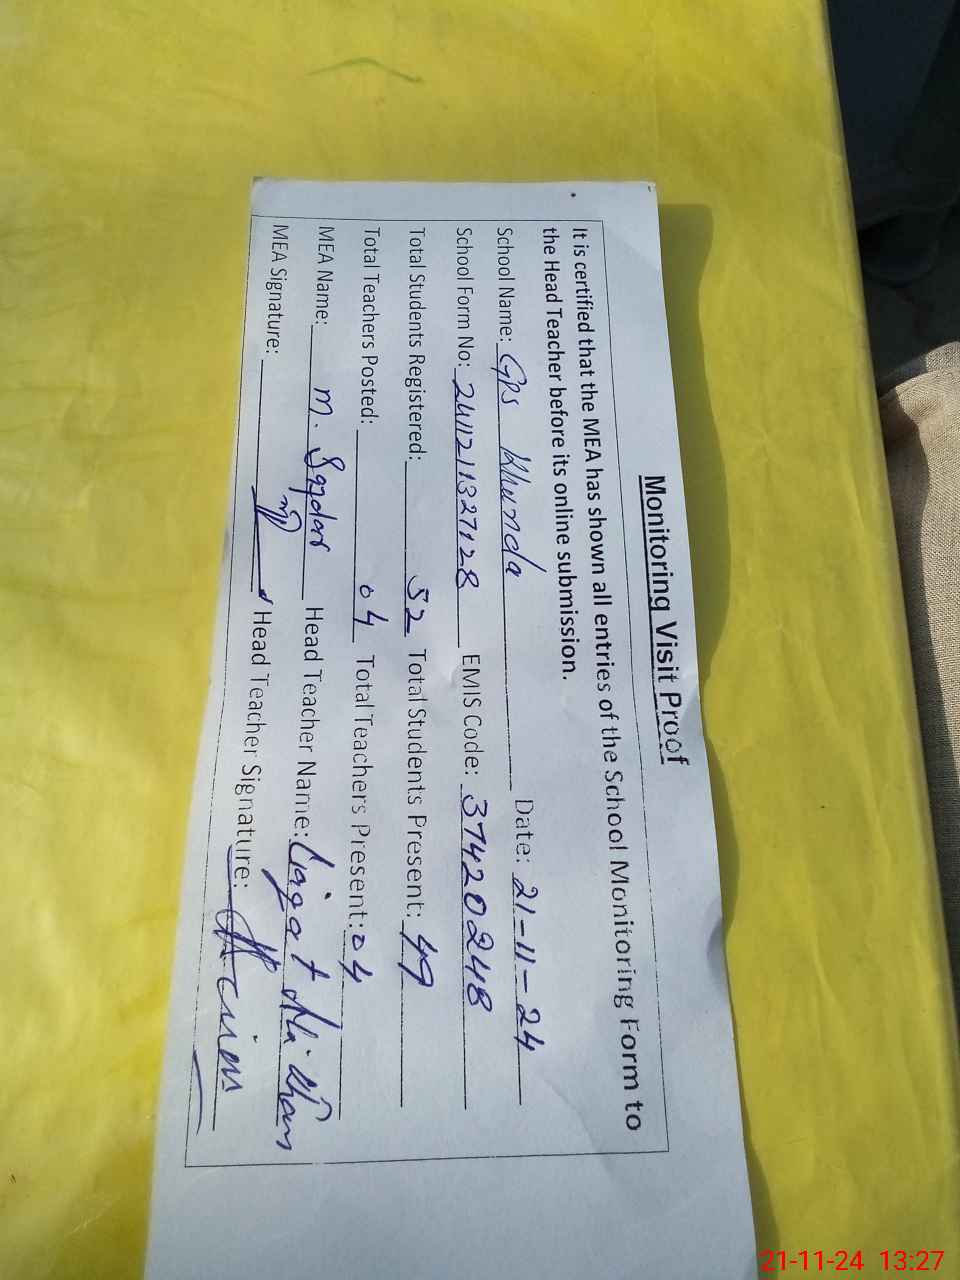 Monitoring Visit Proof
It is certified that the MEA has shown all entries of the School Monitoring Form to
the Head Teacher before its online submission.
School Name: GPS Khunda Date: 21-11-24
School Form No: 2411211327128 EMIS Code: 37420248
Total Students Registered: 52 Total Students Present: 49
Total Teachers Posted: 04 Total Teachers Present: 04
MEA Name: M. Safdar Head Teacher Name: Liaqat Ala Khan
MEA Signature: Head Teacher Signature:
21-11-24 13:27